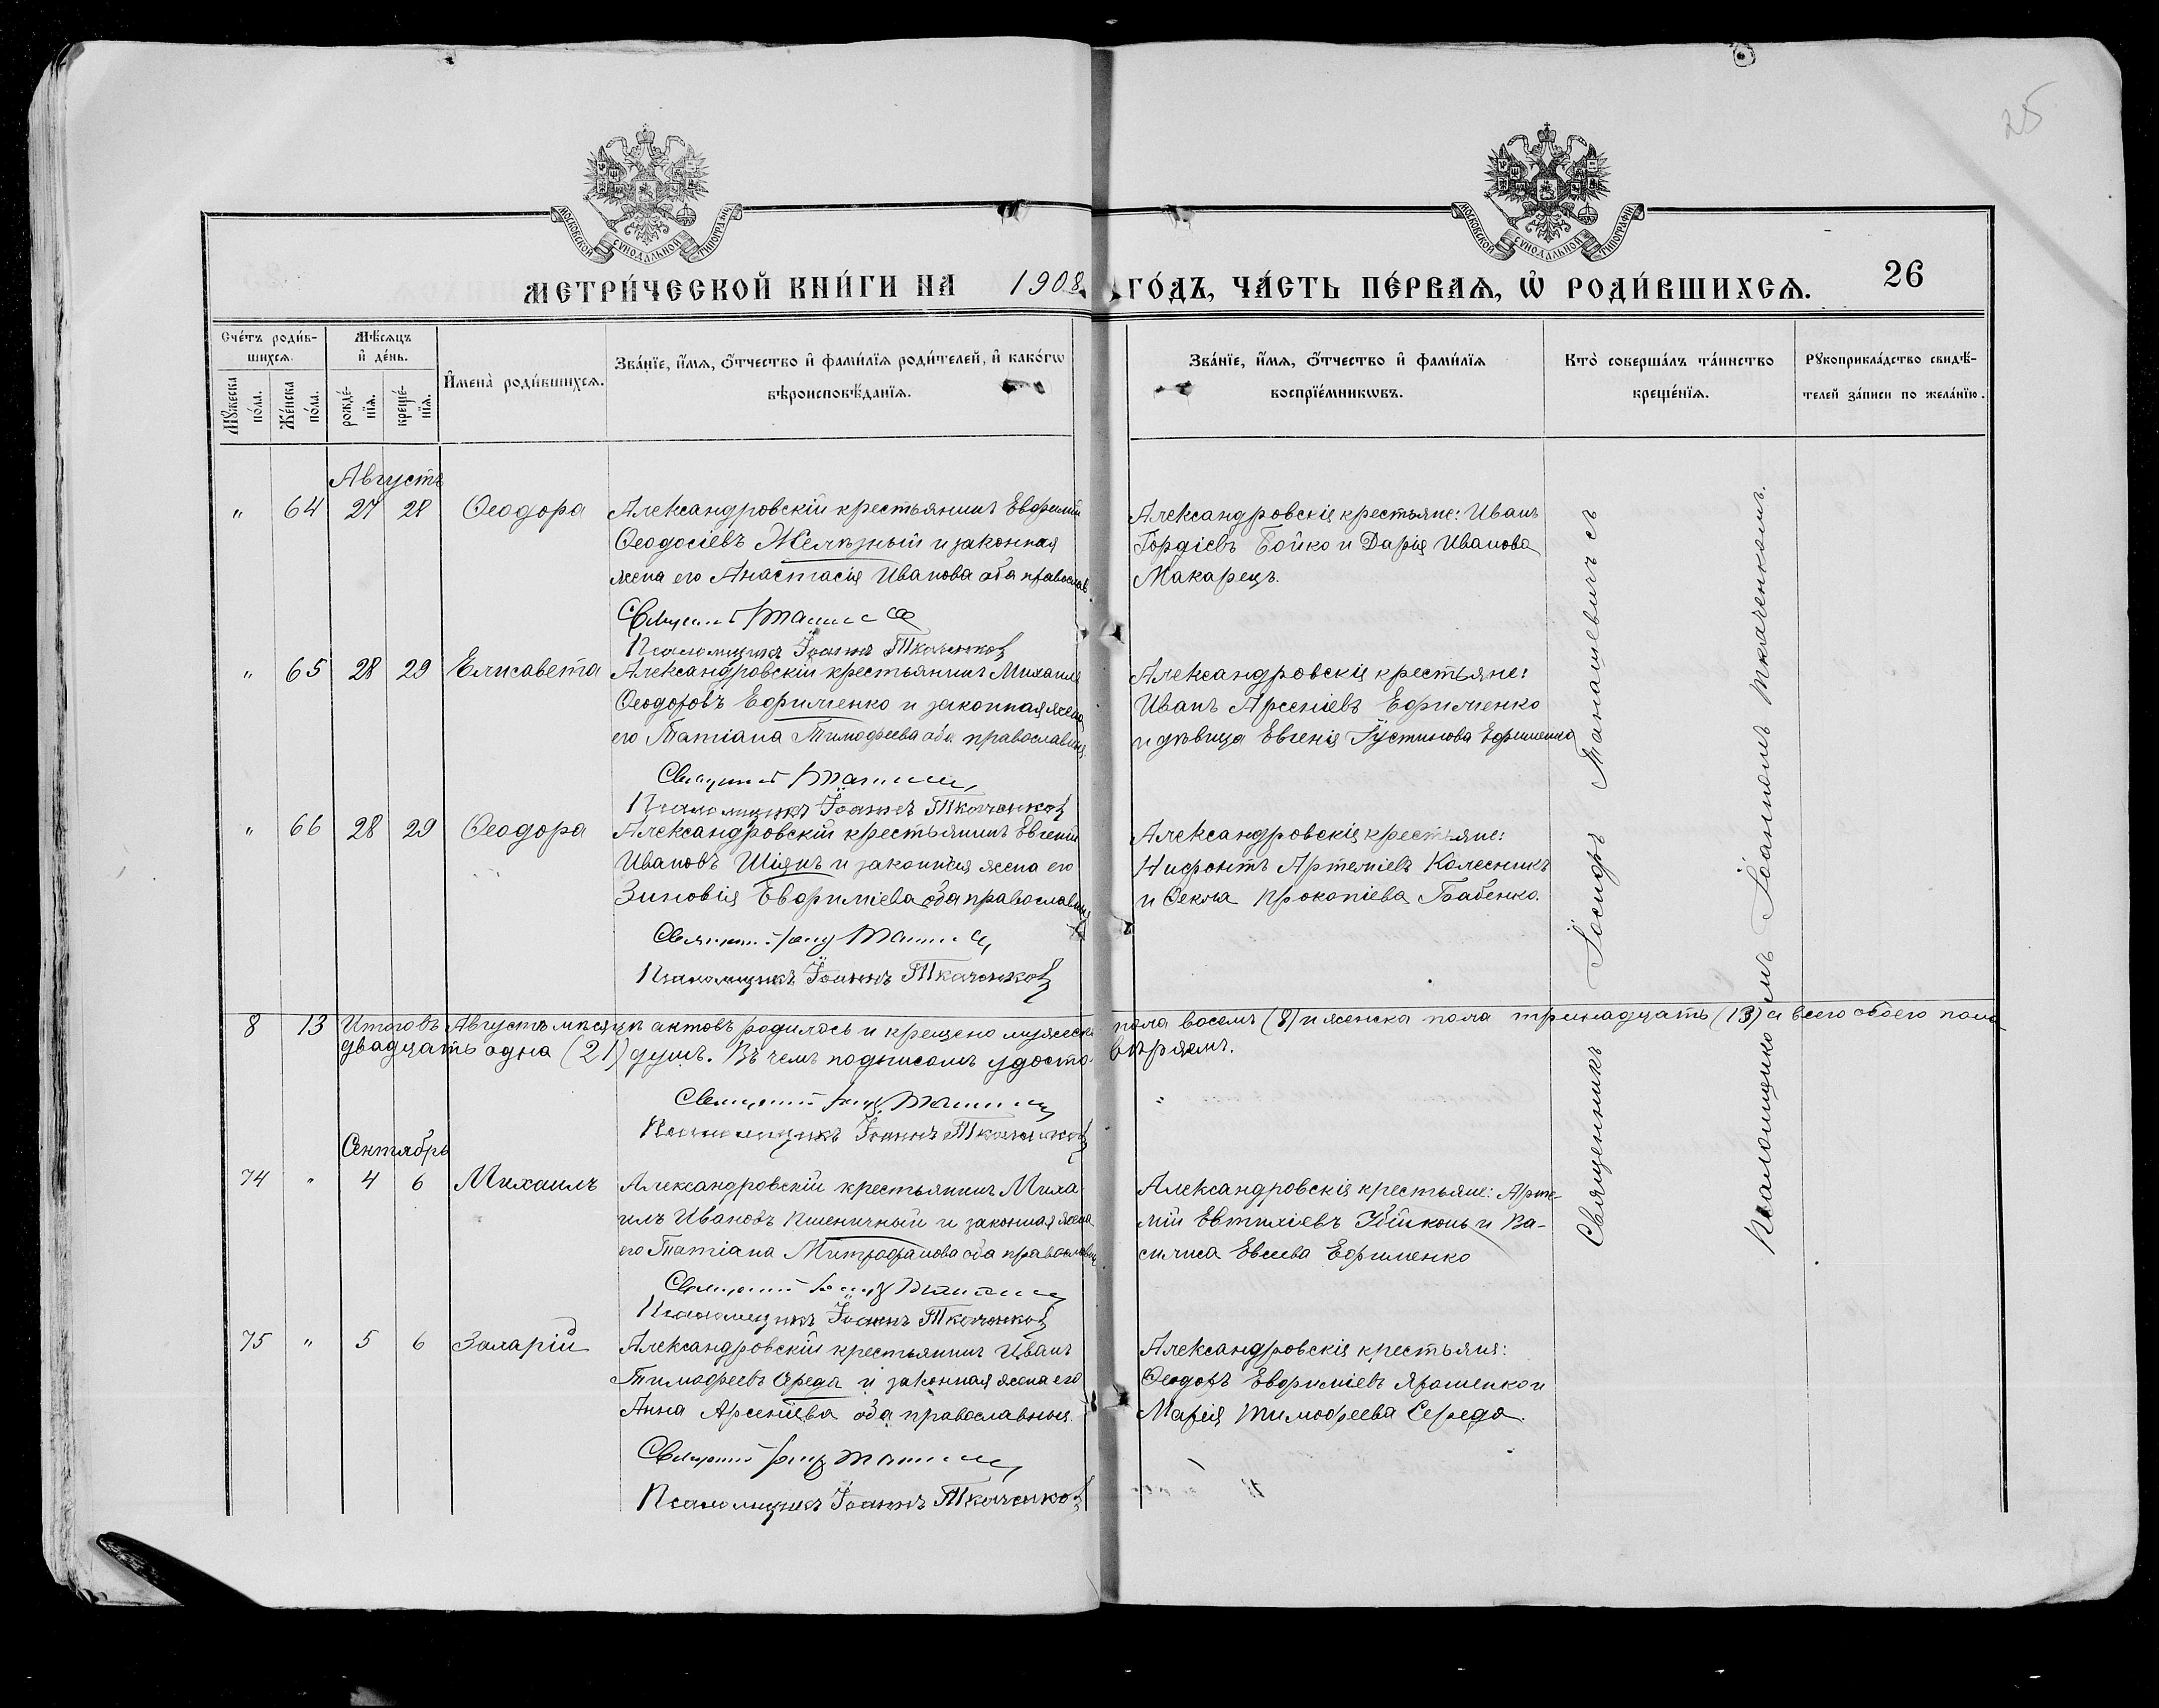 25
МОСКОВСКОЙ СУНОДАЛЬНОЙ ТИПОГРАФІИ
МОСКОВСКОЙ СУНОДАЛЬНОЙ ТИПОГРАФІИ
МЕТРИ́ЧЕСКОЙ КНИ́ГИ НА 1908
ГО́ДЪ, ЧА́СТЬ ПЕ́РВАѦ, Ѡ РОДИ́ВШИХСѦ. 26
Сче́тъ роди́в-
шихсѧ.
Мꙋ́жеска по́ла.
Же́нска по́ла.
Мѣ́сѧцъ
и҆ де́нь.
рожде́-
нїѧ.
креще́-
нїѧ.
И҆мена̀ роди́вшихсѧ.
Зва́нїе, и҆́мѧ, ѻ҆́тчество и҆ фами́лїѧ роди́телей, и҆ како́гѡ
вѣроисповѣ́данїѧ.
Зва́нїе, и҆́мѧ, ѻ҆́тчество и҆ фами́лїѧ
воспрїе́мникѡвъ.
Кто̀ соверша́лъ та́инство
креще́нїѧ.
Рꙋкоприкла́дство свидѣ́-
телей за́писи по жела́нїю.
Августъ
" 64 27 28 Ѳеодора
Александровскій крестьянинъ Евфимій
Ѳеодосіевъ Желѣзный и законная
жена его Анастасія Иванова оба православ
Псаломщикъ Іоаннъ Ткаченковъ
Александровскія крестьяне: Иванъ
Гордіевъ Бойко и Дарія Иванова
Макарецъ.
" 65 28 29 Елисавета
Александровскій крестьянинъ Михаилъ
Ѳеодоровъ Ефименко и законная жена
его Татіана Тимофеева оба православные
Псаломщикъ Іоаннъ Ткаченковъ
Александровскія крестьяне:
Иванъ Арсеніевъ Ефименко
и дѣвица Евгенія Іустинова Ефименко
" 66 28 29 Ѳеодора
Александровскій крестьянинъ Евгеній
Ивановъ Шіянъ и законная жена его
Зиновія Евфиміева оба православные
Псаломщикъ Іоаннъ Ткаченковъ
Александровскія крестьяне:
Нифонтъ Артеміевъ Колесникъ
и Ѳекла Прокопіева Бабенко.
8 13 Итого въ Августъ мѣсяцѣ актовъ родилось и крещено мужеска пола восемь (8) и женска пола тринадцать (13) а всего обоего пола
двадцать одна (21) душъ. Въ чемъ подписомъ удостовѣряемъ.
Псаломщикъ Іоаннъ Ткаченковъ
Сентябрь
74 " 4 6 Михаилъ
Александровскій крестьянинъ Миха
илъ Ивановъ Пшеничный и законная жена
его Татіана Митрофанова оба православные
Псаломщикъ Іоаннъ Ткаченковъ
Александровскія крестьяне: Арте-
мій Евтихіевъ Убійконь и Ва-
силиса Евсеева Ефименко
75 " 5 6 Захарій
Александровскій крестьянинъ Иванъ
Тимофеевъ Среда и законная жена его
Анна Арсеніева оба православные.
Псаломщикъ Іоаннъ Ткаченковъ
Александровскія крестьяня:
Ѳеодоръ Евфиміевъ Ярошенко и
Марія Тимофеева Середа.
Священникъ Іосифъ Манашевичъ съ
Псаломщикомъ Іоанномъ Ткаченкомъ.